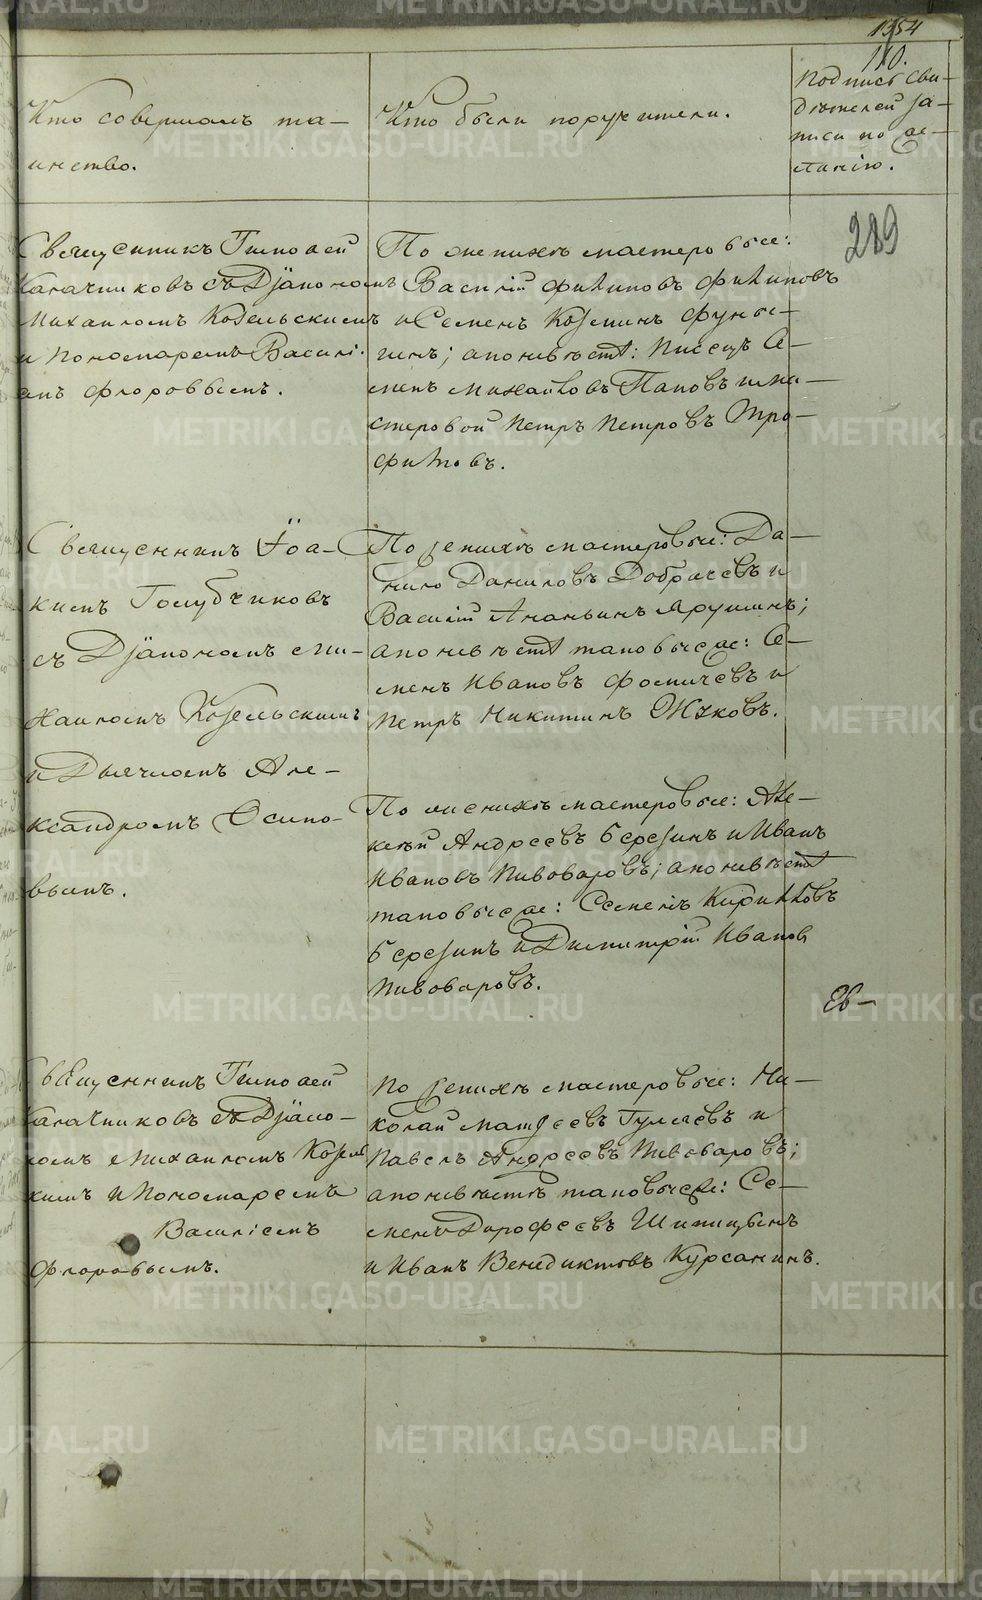 1354
110.
Кто совершалъ та-
инство.
Кто были поручители.
Подпись сви-
дѣтелей за-
писи по же-
ланію.
289
Священникъ Тимоѳей
Калачниковъ съ Діакономъ
Михаиломъ Козельскимъ
и Пономаремъ Василі-
емъ Флоровымъ.
По женихѣ мастеровые:
Василій Филиповъ Филиповъ
и Семенъ Козминъ
а по невѣстѣ: Писецъ Се-
менъ Михайловъ Паповъ и ма-
стеровой Петръ Петровъ Тро-
фимовъ.
Священникъ Іоа-
кимъ Голубчиковъ
съ Діакономъ Ми-
хаиломъ Козельскимъ
и Дьячкомъ Але-
ксандромъ Осипо-
вымъ.
По женихѣ мастеровые: Да-
нило Даниловъ Добрачевъ и
Василій Ананьинъ Ярушинъ;
а по невѣстѣ таковые же: Се-
менъ Ивановъ Фомичевъ и
Петръ Никитинъ
По женихѣ мастеровые: Але-
ксѣй Андреевъ Березинъ и Иванъ
Ивановъ Пивоваровъ; а по невѣстѣ
таковые же: Семенъ Кириловъ
Березинъ и Димитрій Ивановъ
Пивоваровъ.
Ев-
Священникъ Тимоѳей
Калачниковъ съ Діако-
номъ Михаиломъ Козельс
кимъ и Пономаремъ
Василіемъ
Флоровымъ.
По женихѣ мастеровые: Ни-
колай Матѳеевъ Гуляевъ и
Павелъ Андреевъ Пивоваровъ;
а по невѣстѣ таковые же: Се-
менъ Дорофеевъ Шипицынъ
и Иванъ Венедиктовъ Курсанинъ.
METRIKI.GASO-URAL.RU